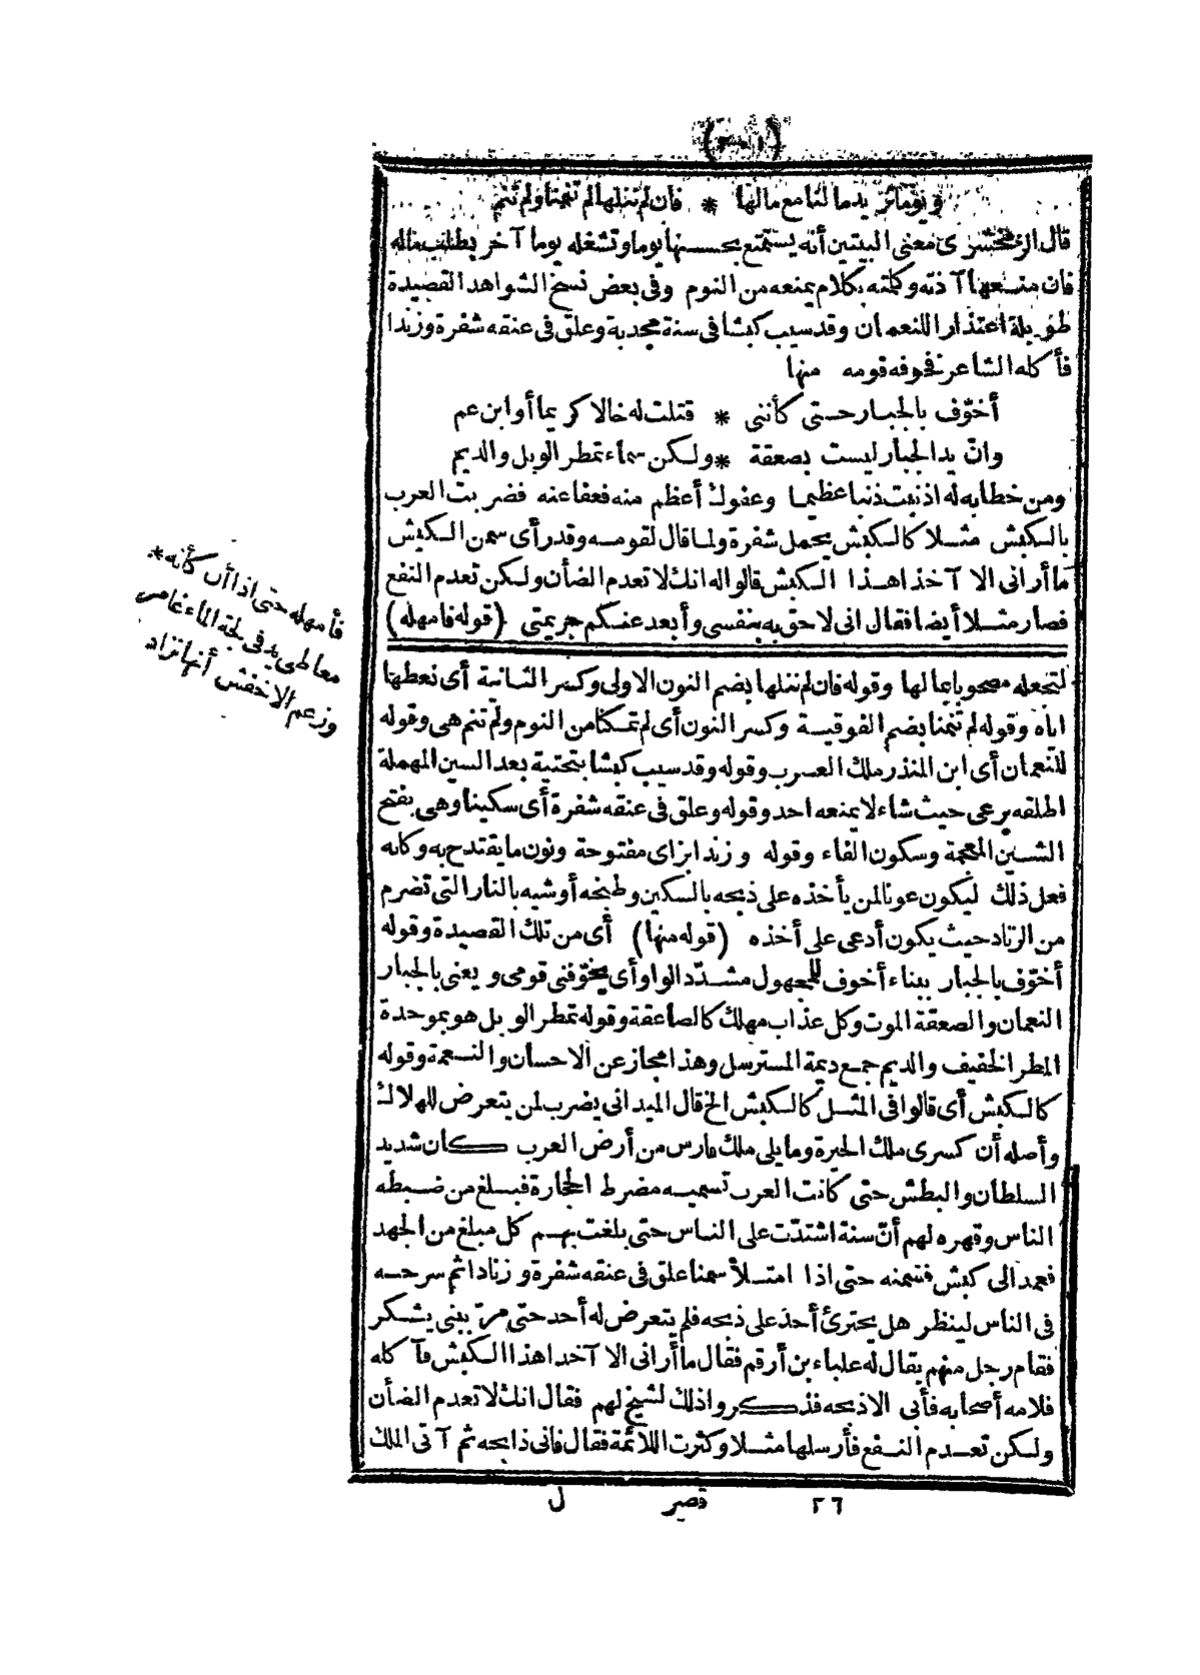 ويوما تريد مالنا مع مالها * فان لم ننلها لم تنمنا ولم تنم
قال الزمخشرى معنى البيتين أنه يستمتع بحسنها يوما وتشغله يوما آخر بطلب ماله
فان منعها آذته وكلمته بكلام يمنعه من النوم وفى بعض نسخ الشواهد القصيدة
طويلة اعتذارا للنعمان وقد سيب كبشا فى سنة مجدبة وعلق فى عنقه شفرة وزندا
فأكله الشاعر فخوفه قومه منها
أخوّف بالجبار حتى كأننى * قتلت له خالا كريما أو ابن عم
وانّ يد الجبار ليست بصعقة * ولكن سماء تمطر الوبل والديم
ومن خطابه له اذنبت ذنبا عظيما وعفوك أعظم منه فعفا عنه فضربت العرب
بالكبش مثلا كالكبش يحمل شفرة ولما قال لقومه وقد رأى سمن الكبش
ما أرانى الا آخذا هذا الكبش قالوا له انك لا تعدم الضأن ولكن تعدم النفع
فصار مثلا أيضا فقال انى لاحق به بنفسى وأبعد عنكم جريمتى (قوله فامهله)
فأمهله حتى اذا أن كأنه *
معاطى يد فى لجة الماء غامر
وزعم الاخفش أنها تزاد
لتجعله مصحوبا بمالها وقوله فان لم ننلها بضم النون الاولى وكسر الثانية أى نعطها
اياه وقوله لم تنمنا بضم الفوقية وكسر النون أى لم تمكنا من النوم ولم تنم هى وقوله
للنعمان أى ابن المنذر ملك العرب وقوله وقد سيب كبشا بتحتية بعد السين المهملة
اطلقه يرعى حيث شاء لا يمنعه احد وقوله وعلق فى عنقه شفرة أى سكينا وهى بفتح
الشين المعجمة وسكون الفاء وقوله وزندا بزاى مفتوحة ونون ما يقتدح به وكانه
فعل ذلك ليكون عونا لمن يأخذه على ذبحه بالسكين وطبخه أو شيه بالنار التى تضرم
من الزناد حيث يكون أدعى على أخذه (قوله منها) أى من تلك القصيدة وقوله
أخوّف بالجبار ببناء أخوف للمجهول مشدّد الواو أى يخوّفنى قومى ويعنى بالجبار
النعمان والصعقة الموت وكل عذاب مهلك كالصاعقة وقوله تمطر الوبل هو بموحدة
المطر الخفيف والديم جمع ديمة المسترسل وهذا مجاز عن الاحسان والنعمة وقوله
كالكبش أى قالوا فى المثل كالكبش الخ قال الميدانى يضرب لمن يتعرض للهلاك
وأصله أن كسرى ملك الحيرة وما يلى ملك فارس من أرض العرب كان شديد
السلطان والبطش حتى كانت العرب تسميه مضرط الحجارة فبلغ من ضبطه
الناس وقهره لهم أنّ سنة اشتدّت على الناس حتى بلغت بهم كل مبلغ من الجهد
فعمد الى كبش فسمنه حتى اذا امتلأ سمنا علق فى عنقه شفرة وزنادا ثم سرحه
فى الناس لينظر هل يجترئ أحد على ذبحه فلم يتعرض له أحد حتى مرّ ببنى يشكر
فقام رجل منهم يقال له علباء بن أرقم فقال ما أرانى الا آخذا هذا الكبش فآكله
فلامه أصحابه فأبى الا ذبحه فذكروا ذلك لشيخ لهم فقال انك لا تعدم الضأن
ولكن تعدم النفع فأرسلها مثلا وكثرت اللائمة فقال فانى ذابحه ثم آتى الملك
٢٦ قصر ل